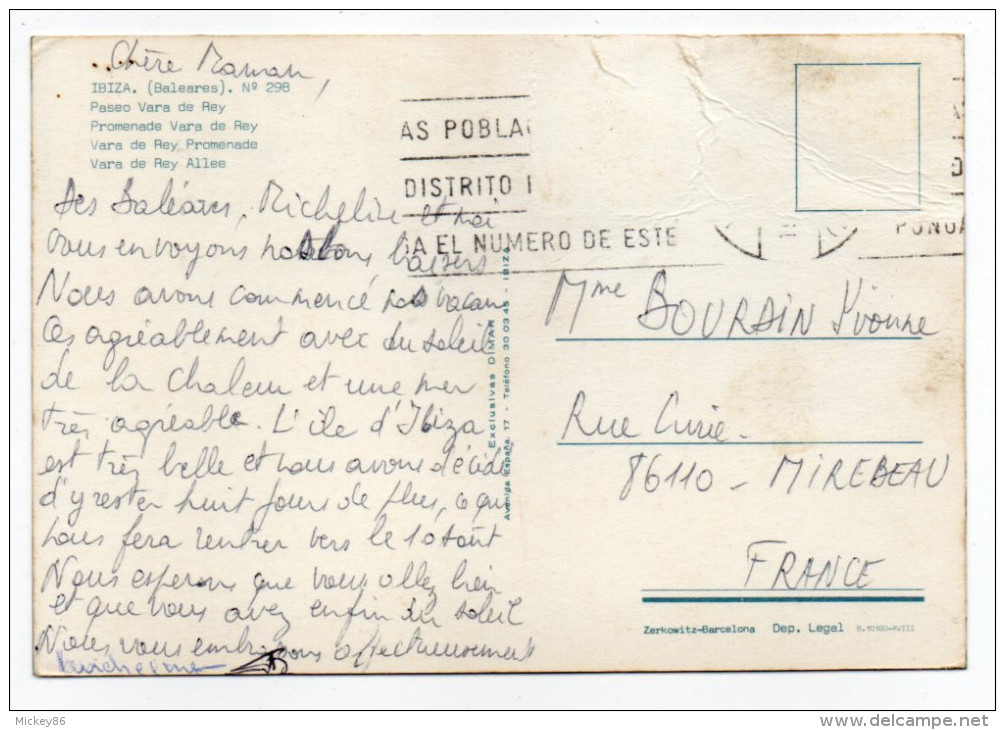 Chère Maman,
IBIZA. (Baleares). Nº 298
Paseo Vara de Rey
Promenade Vara de Rey
Vara de Rey Promenade
Vara de Rey Allee
Des Baléares, Micheline et moi
vous envoyons nos bons baisers
Nous avons commencé nos vacan
ces agréablement avec du soleil
de la chaleur et une mer
très agréable. L'île d'Ibiza
est très belle et nous avons décidé
d'y rester huit jours de plus, ce qui
nous fera rentrer vers le 10 août
Nous esperons que vous allez bien
et que vous avez enfin du soleil
Nous vous embrassons affectueusement
Micheline
AS POBLA
DISTRITO
A EL NUMERO DE ESTE
PONGA
Exclusivas DIMAR
Avenida España, 17 - Teléfono 30 03 45 - IBIZA
Mme BOURDIN Yvonne
Rue Curie -
86110 - MIREBEAU
FRANCE
Zerkowitz-Barcelona Dep. Legal B. 10160-XVIII
Mickey86
www.delcampe.net